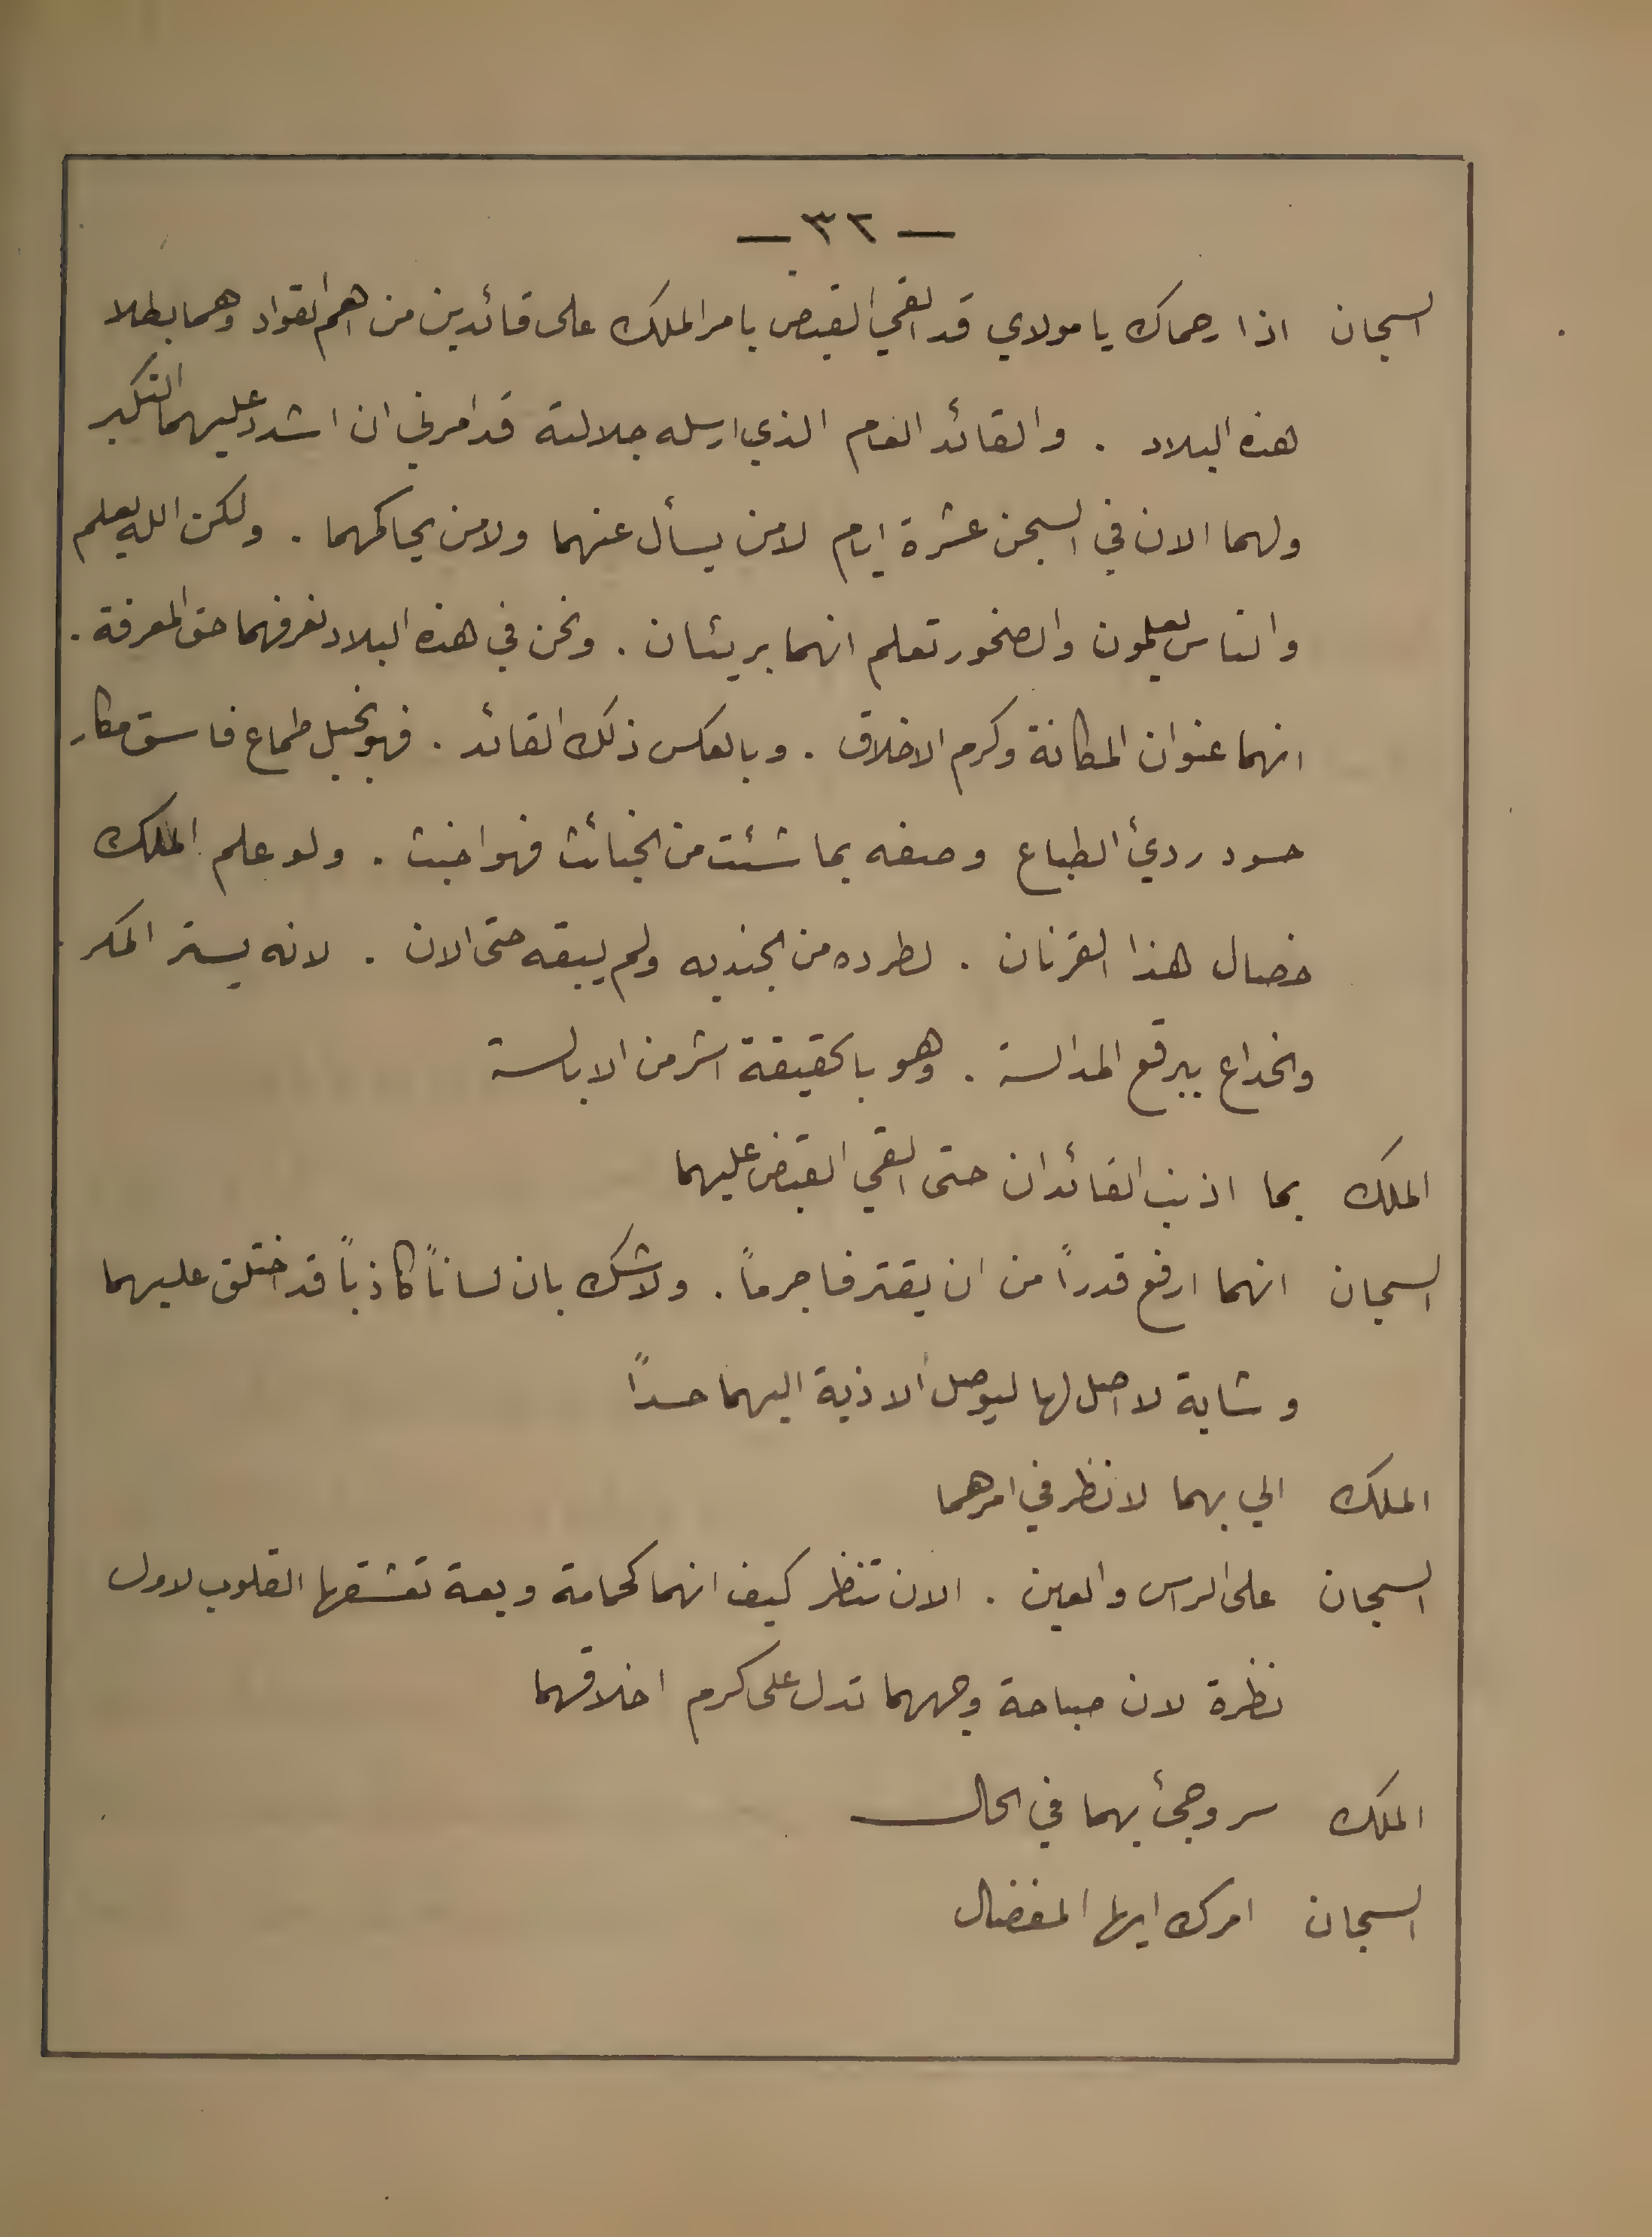 — ٣٢ —
السجان اذا رحماك يا مولاي قد القي القبض بامر الملك على قائدين من اهم القواد وهما بطلا
هذه البلاد . والقائد العام الذي ارسله جلالته قد امرني ان اشدد عليهما النكير
ولهما الان في السجن عشرة ايام لا من يسأل عنهما ولا من يحاكمهما . ولكن الله يعلم
والناس يعلمون والصخور تعلم انهما بريئان . ونحن في هذه البلاد نعرفهما حق المعرفة .
انهما عنوان المكانة وكرم الاخلاق . وبالعكس ذلك القائد . فهو بخيل طماع فاسق مكار
حسود ردئ الطباع وصفه بما شئت من الخبائث فهو اخبث . ولو علم الملك
خصال هذا القرنان . لطرده من الجنديه ولم يبقه حتى الان . لانه يستر المكر
والخداع ببرقع المدالسة . وهو بالحقيقة اشر من الابالسة
الملك بما اذنب القائدان حتى القي القبض عليهما
السجان انهما ارفع قدراً من ان يقترفا جرماً . ولا شك بان لساناً كاذباً قد اختلق عليهما
وشاية لا اصل لها ليوصل الاذية اليهما حسداً
الملك الي بهما لانظر في امرهما
السجان على الراس والعين . الان تنظر كيف انهما كحمامة وديعة تعشقها القلوب لاول
نظرة لان صباحة وجههما تدل على كرم اخلاقهما
الملك سر وجئ بهما في الحال
السجان امرك ايها المفضال